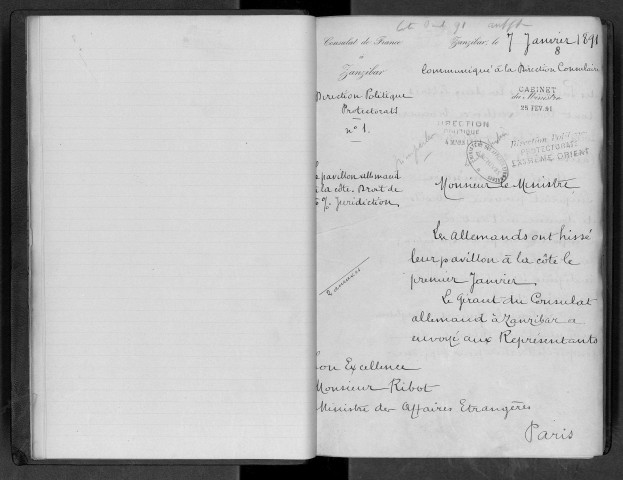 Consulat de France
à
Zanzibar
Zanzibar, le 7 Janvier 1891
8
Direction Politique
Protectorats
n° 1.
Communiqué à la Direction Consulaire
CABINET
du Ministre
25 FEV. 91
DIRECTION
POLITIQUE
PROTECTORATS
EXTRÊME ORIENT
pavillon allemand
à la côte. Droit de
5 %. Juridiction.
2 annexes
Monsieur le Ministre
Les allemands ont hissé
leur pavillon à la côte le
premier Janvier.
Le Gérant du Consulat
allemand à Zanzibar a
envoyé aux Représentants
Son Excellence
Monsieur Ribot
Ministre des Affaires Etrangères
Paris